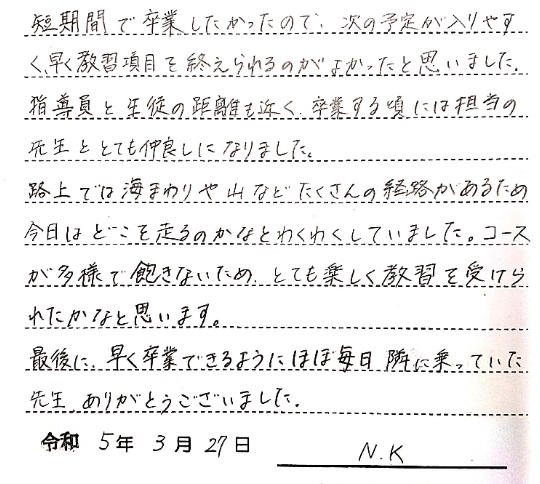 短期間で卒業したかったので、次の予定が入りやす
く、早く教習項目を終えられるのがよかったと思いました。
指導員と生徒の距離も近く、卒業する頃には担当の
先生ととても仲良しになりました。
路上では海まわりや山などたくさんの経路があるため
今日はどこを走るのかなとわくわくしていました。コース
が多様で飽きないため、とても楽しく教習を受けら
れたかなと思います。
最後に、早く卒業できるようにほぼ毎日隣に乗っていた
先生、ありがとうございました。
令和 5年 3月 27日 N.K